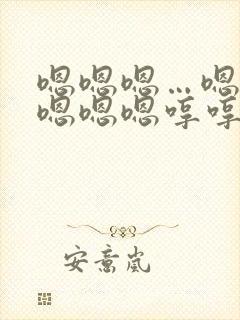 嗯嗯嗯…嗯
嗯嗯嗯哼哼
安意岚